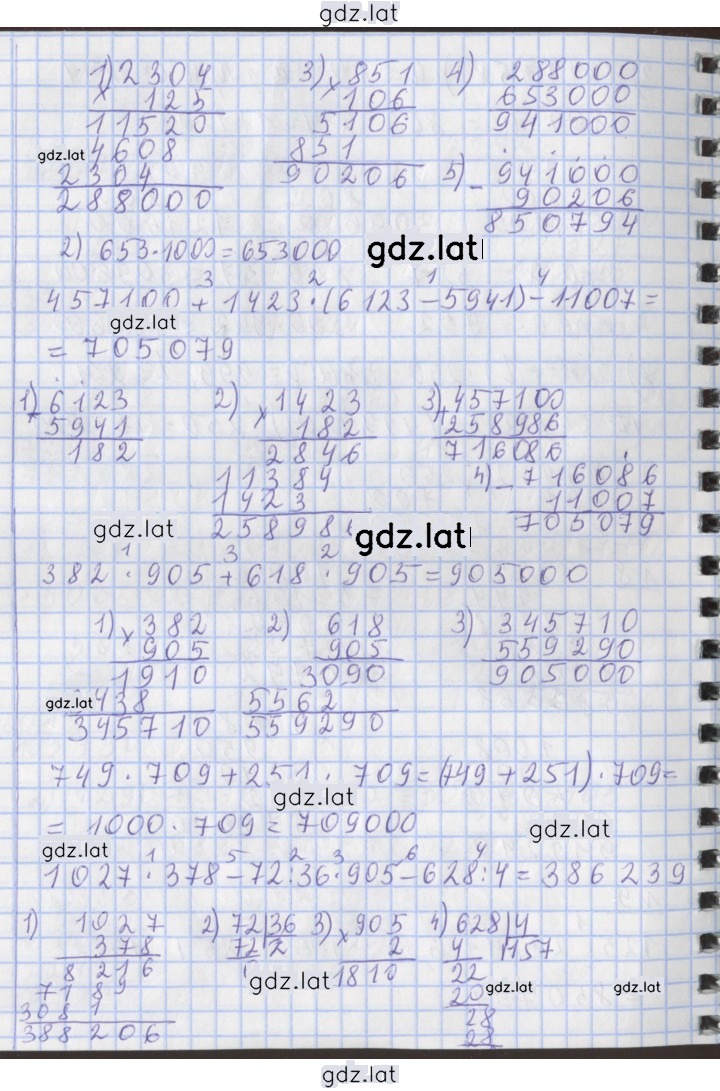 gdz.lat
1) 2304 3) 851 4) 288000
× 125 × 106 653000
11520 5106 941000
gdz.lat 4608 851 5) 941000
2304 90206 - 90206
288000 850794
2) 653·1000=653000 gdz.lat
3 2 1 4
457100+1423·(6123-5941)-11007=
gdz.lat
=705079
1) 6123 2) 1423 3) 457100
- 5941 × 182 + 258986
182 2846 716086
11384 4) - 716086
1423 11007
gdz.lat 25898 gdz.lat 705079
1 3 2
382·905+618·905=905000
1) 382 2) 618 3) 345710
× 905 905 559290
1910 3090 905000
gdz.lat 438 5562
345710 559290
749·709+251·709=(749+251)·709=
gdz.lat
=1000·709=709000 gdz.lat
gdz.lat
1 5 2 3 6 4
1027·378-72:36·905-628:4=386239
1) 1027 2) 72 36 3) 905 4) 628 4
378 72 2 × 2 4 157
8216 gdz.lat 1810 22
7189 20 gdz.lat gdz.lat
3081 28
388206 28
gdz.lat